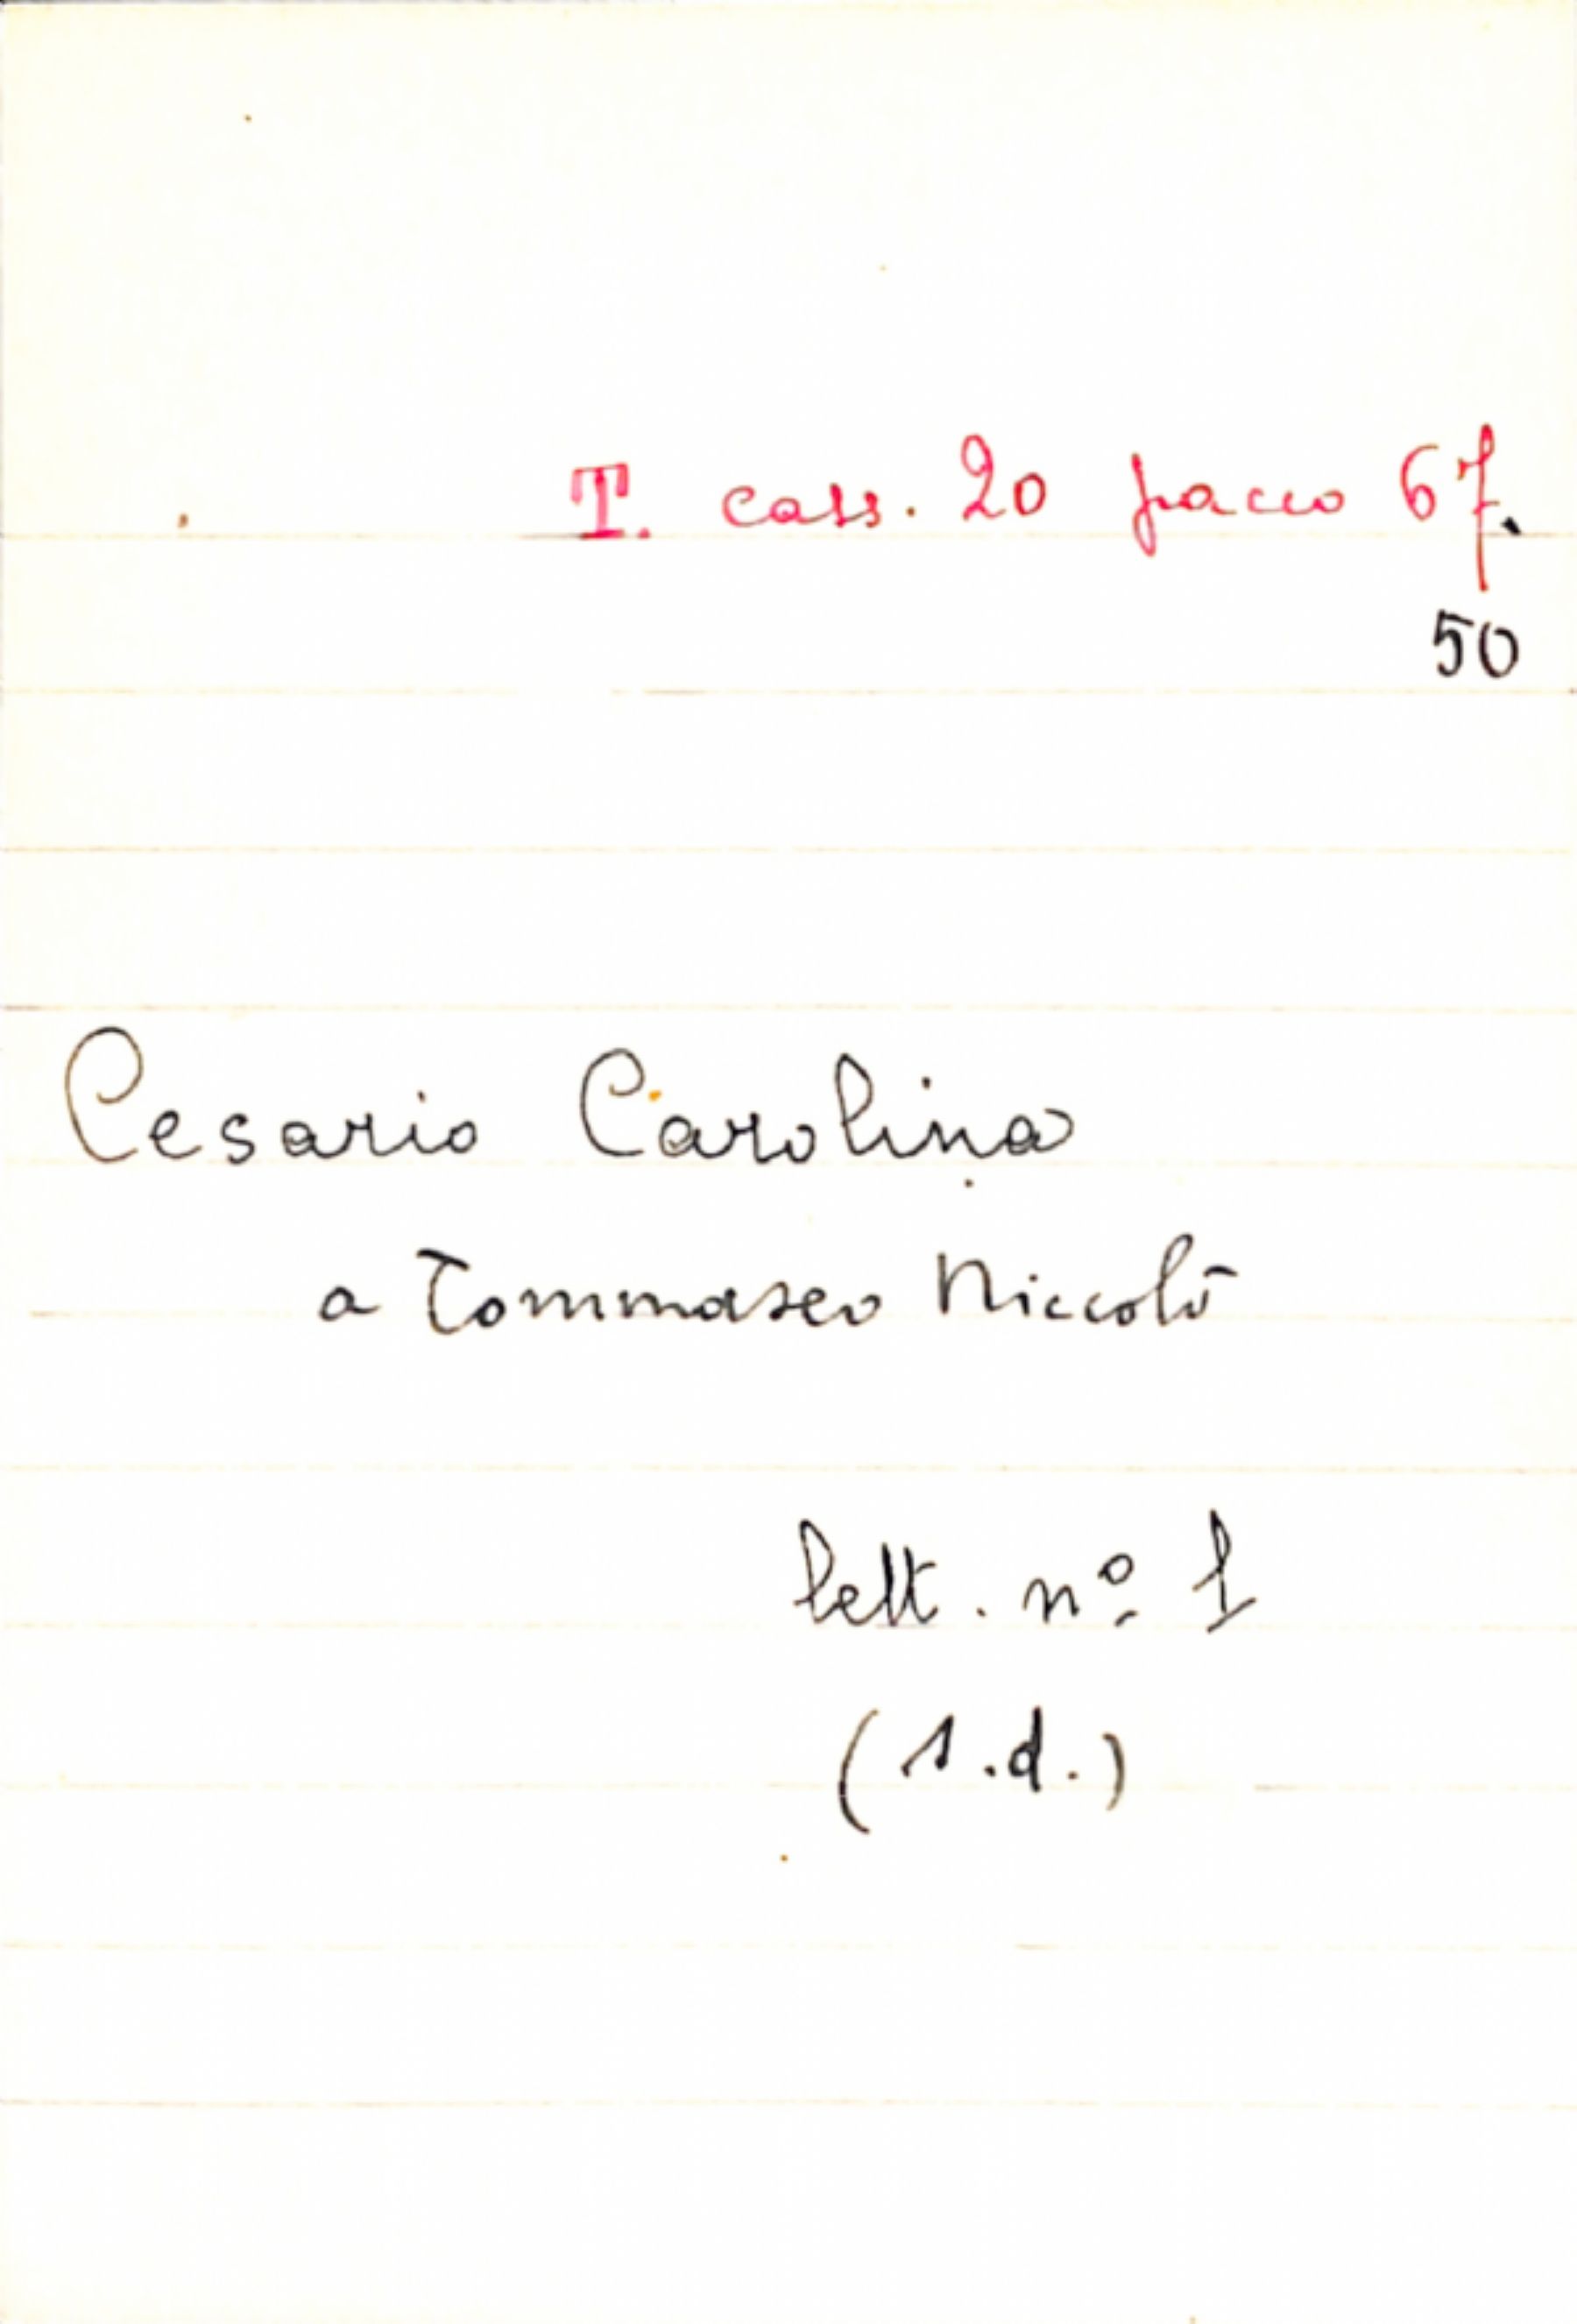 T. cass. 20 pacco 67.
50
Cesario Carolina
a Tommaseo Niccolò
lett. nº 1
(s.d.)